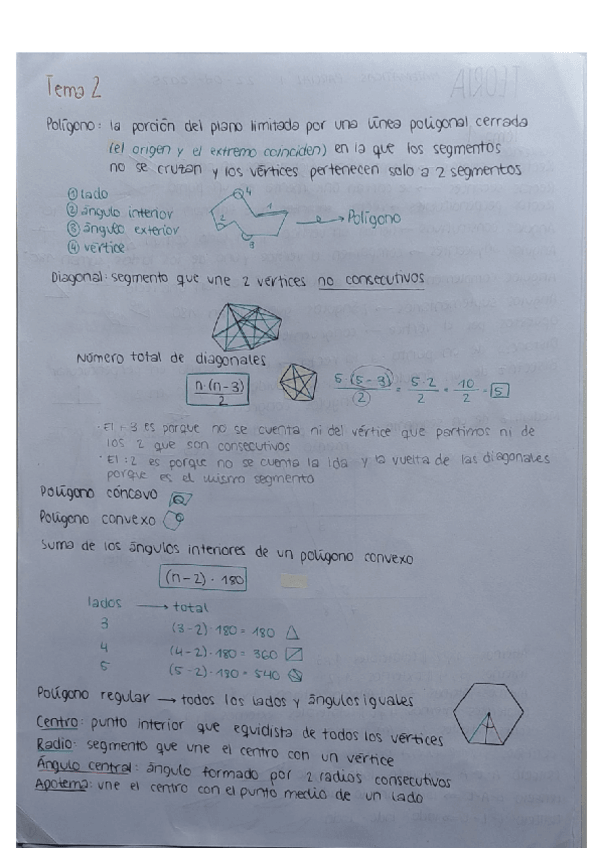 Tema 2
Polígono: la porción del plano limitada por una línea poligonal cerrada
(el origen y el extremo coinciden) en la que los segmentos
no se cruzan y los vértices pertenecen solo a 2 segmentos
① lado
② ángulo interior
③ ángulo exterior
④ vértice
4
1
2
3
Polígono
Diagonal: segmento que une 2 vértices no consecutivos
Número total de diagonales
n·(n-3)/2
5·(5-3)/2 = 5·2/2 = 10/2 = 5
· El -3 es porque no se cuenta ni del vértice que partimos ni de
los 2 que son consecutivos
· El :2 es porque no se cuenta la ida y la vuelta de las diagonales
porque es el mismo segmento
Polígono cóncavo
Polígono convexo
Suma de los ángulos interiores de un polígono convexo
(n-2)·180
lados → total
3 (3-2)·180 = 180
4 (4-2)·180 = 360
5 (5-2)·180 = 540
Polígono regular → todos los lados y ángulos iguales
Centro: punto interior que equidista de todos los vértices
Radio: segmento que une el centro con un vértice
Ángulo central: ángulo formado por 2 radios consecutivos
Apotema: une el centro con el punto medio de un lado